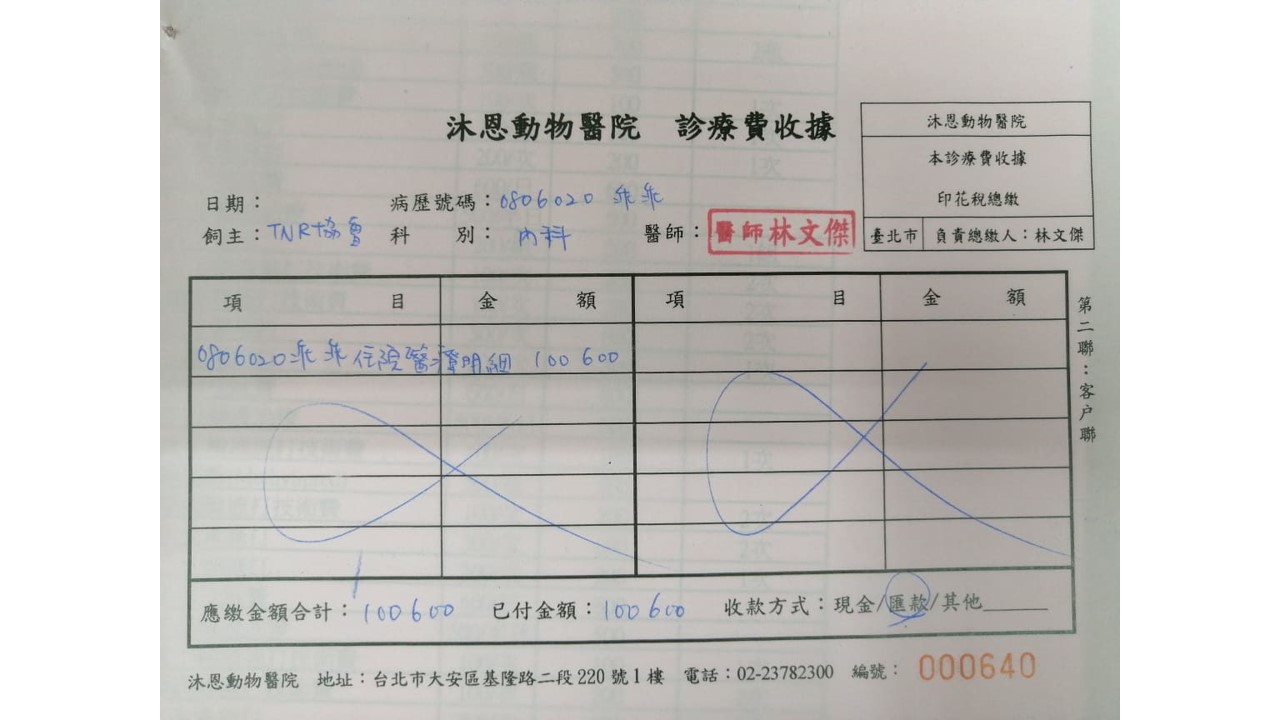 沐恩動物醫院 診療費收據
沐恩動物醫院
本診療費收據
印花稅總繳
臺北市 負責總繳人：林文傑
日期： 病歷號碼：0806020 乖乖
飼主：TNR協會 科 別： 內科 醫師：醫師林文傑
項 目 金 額 項 目 金 額
0806020乖乖住院醫療明細 100600
應繳金額合計：100600 已付金額：100600 收款方式：現金/匯款/其他______
第二聯：客户聯
沐恩動物醫院 地址：台北市大安區基隆路二段220號1樓 電話：02-23782300 編號： 000640